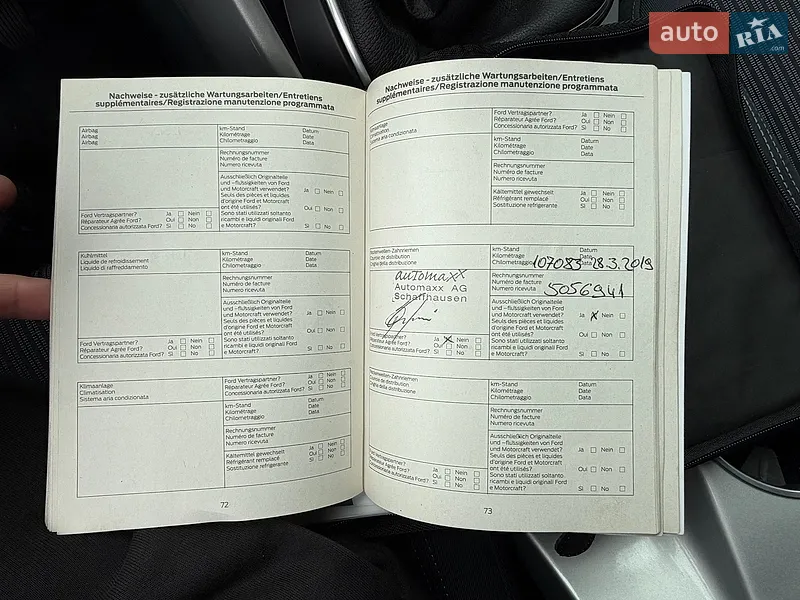 auto RIA .com
Nachweise - zusätzliche Wartungsarbeiten/Entretiens
supplémentaires/Registrazione manutenzione programmata
Airbag
Airbag
Airbag
km-Stand Datum
Kilométrage Date
Chilometraggio Data
Rechnungsnummer
Numéro de facture
Numero ricevuta
Ausschließlich Originalteile
und -flüssigkeiten von Ford
und Motorcraft verwendet? Ja Nein
Seuls des pièces et liquides
d'origine Ford et Motorcraft
ont été utilisés? Oui Non
Sono stati utilizzati soltanto
ricambi e liquidi originali Ford
e Motorcraft? Sì No
Ford Vertragspartner? Ja Nein
Réparateur Agréé Ford? Oui Non
Concessionaria autorizzata Ford? Sì No
Kühlmittel
Liquide de refroidissement
Liquido di raffreddamento
km-Stand Datum
Kilométrage Date
Chilometraggio Data
Rechnungsnummer
Numéro de facture
Numero ricevuta
Ausschließlich Originalteile
und -flüssigkeiten von Ford
und Motorcraft verwendet? Ja Nein
Seuls des pièces et liquides
d'origine Ford et Motorcraft
ont été utilisés? Oui Non
Sono stati utilizzati soltanto
ricambi e liquidi originali Ford
e Motorcraft? Sì No
Ford Vertragspartner? Ja Nein
Réparateur Agréé Ford? Oui Non
Concessionaria autorizzata Ford? Sì No
Klimaanlage
Climatisation
Sistema aria condizionata
Ford Vertragspartner? Ja Nein
Réparateur Agréé Ford? Oui Non
Concessionaria autorizzata Ford? Sì No
km-Stand Datum
Kilométrage Date
Chilometraggio Data
Rechnungsnummer
Numéro de facture
Numero ricevuta
Kältemittel gewechselt Ja Nein
Réfrigérant remplacé Oui Non
Sostituzione refrigerante Sì No
72
Nachweise - zusätzliche Wartungsarbeiten/Entretiens
supplémentaires/Registrazione manutenzione programmata
Klimaanlage
Climatisation
Sistema aria condizionata
Ford Vertragspartner? Ja Nein
Réparateur Agréé Ford? Oui Non
Concessionaria autorizzata Ford? Sì No
km-Stand Datum
Kilométrage Date
Chilometraggio Data
Rechnungsnummer
Numéro de facture
Numero ricevuta
Kältemittel gewechselt Ja Nein
Réfrigérant remplacé Oui Non
Sostituzione refrigerante Sì No
Nockenwellen-Zahnriemen
Courroie de distribution
Cinghia della distribuzione
automaxx
Automaxx AG
Schaffhausen
km-Stand Datum
Kilométrage Date
Chilometraggio 107083 Data 28.3.2019
Rechnungsnummer
Numéro de facture
Numero ricevuta 5056941
Ausschließlich Originalteile
und -flüssigkeiten von Ford
und Motorcraft verwendet? Ja X Nein
Seuls des pièces et liquides
d'origine Ford et Motorcraft
ont été utilisés? Oui Non
Sono stati utilizzati soltanto
ricambi e liquidi originali Ford
e Motorcraft? Sì No
Ford Vertragspartner? Ja X Nein
Réparateur Agréé Ford? Oui Non
Concessionaria autorizzata Ford? Sì No
Nockenwellen-Zahnriemen
Courroie de distribution
Cinghia della distribuzione
km-Stand Datum
Kilométrage Date
Chilometraggio Data
Rechnungsnummer
Numéro de facture
Numero ricevuta
Ausschließlich Originalteile
und -flüssigkeiten von Ford
und Motorcraft verwendet? Ja Nein
Seuls des pièces et liquides
d'origine Ford et Motorcraft
ont été utilisés? Oui Non
Sono stati utilizzati soltanto
ricambi e liquidi originali Ford
e Motorcraft? Sì No
Ford Vertragspartner? Ja Nein
Réparateur Agréé Ford? Oui Non
Concessionaria autorizzata Ford? Sì No
73